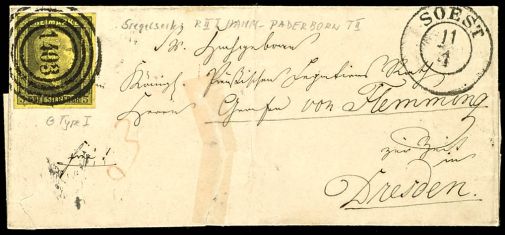 Siegelseitig R II HAMM-PADERBORN T II
SOEST
11
4
1403
Sr. Hochgeboren
dem Königl. Preußischen Legations Rath
Herrn Grafen von Flemming
zur Zeit
in
Dresden.
G Type I
frei!